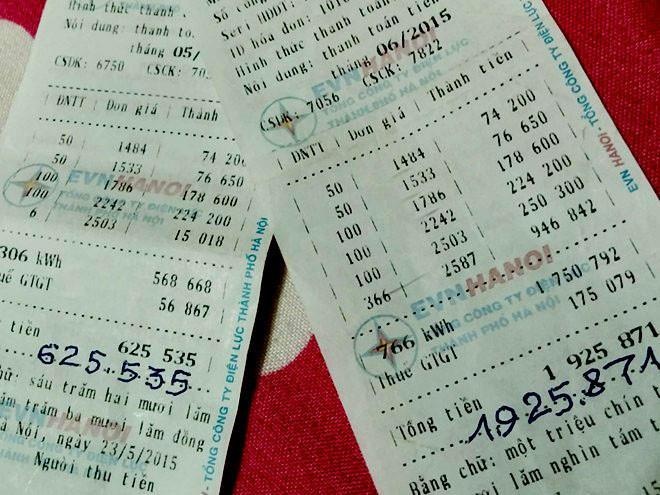 Hình thức thanh
Nội dung: thanh to
tháng 05/
CSDK: 6750 CSCK: 70
ĐNTT Đơn giá Thành
50 1484 74 200
50 1533 76 650
100 1786 178 600
100 2242 224 200
6 2503 15 018
EVNHANOI
TỔNG CÔNG TY ĐIỆN LỰC
THÀNH PHỐ HÀ NỘI
306 kWh 568 668
Thuế GTGT 56 867
tiền 625 535
625.535
chữ: sáu trăm hai mươi lăm
năm trăm ba mươi lăm đồng
Hà Nội, ngày 23/5/2015
Người thu tiền
- TỔNG CÔNG TY ĐIỆN LỰC THÀNH PHỐ HÀ NỘI
Số công
Seri HDDT:
ID hóa đơn: 1010
Hình thức thanh toán
Nội dung: thanh toán tiền
tháng 06/2015
CSDK: 7056 CSCK: 7822
EVNHANOI
TỔNG CÔNG TY ĐIỆN LỰC
THÀNH PHỐ HÀ NỘI
ĐNTT Đơn giá Thành tiền
50 1484 74 200
50 1533 76 650
100 1786 178 600
100 2242 224 200
100 2503 250 300
366 2587 946 842
EVNHANOI
TỔNG CÔNG TY ĐIỆN LỰC
THÀNH PHỐ HÀ NỘI
766 kWh 1 750 792
Thuế GTGT 175 079
Tổng tiền 1 925 871
1.925.871
Bằng chữ: một triệu chín t
lăm nghìn tám t
EVN HANOI - TỔNG CÔNG TY ĐIỆN LỰC